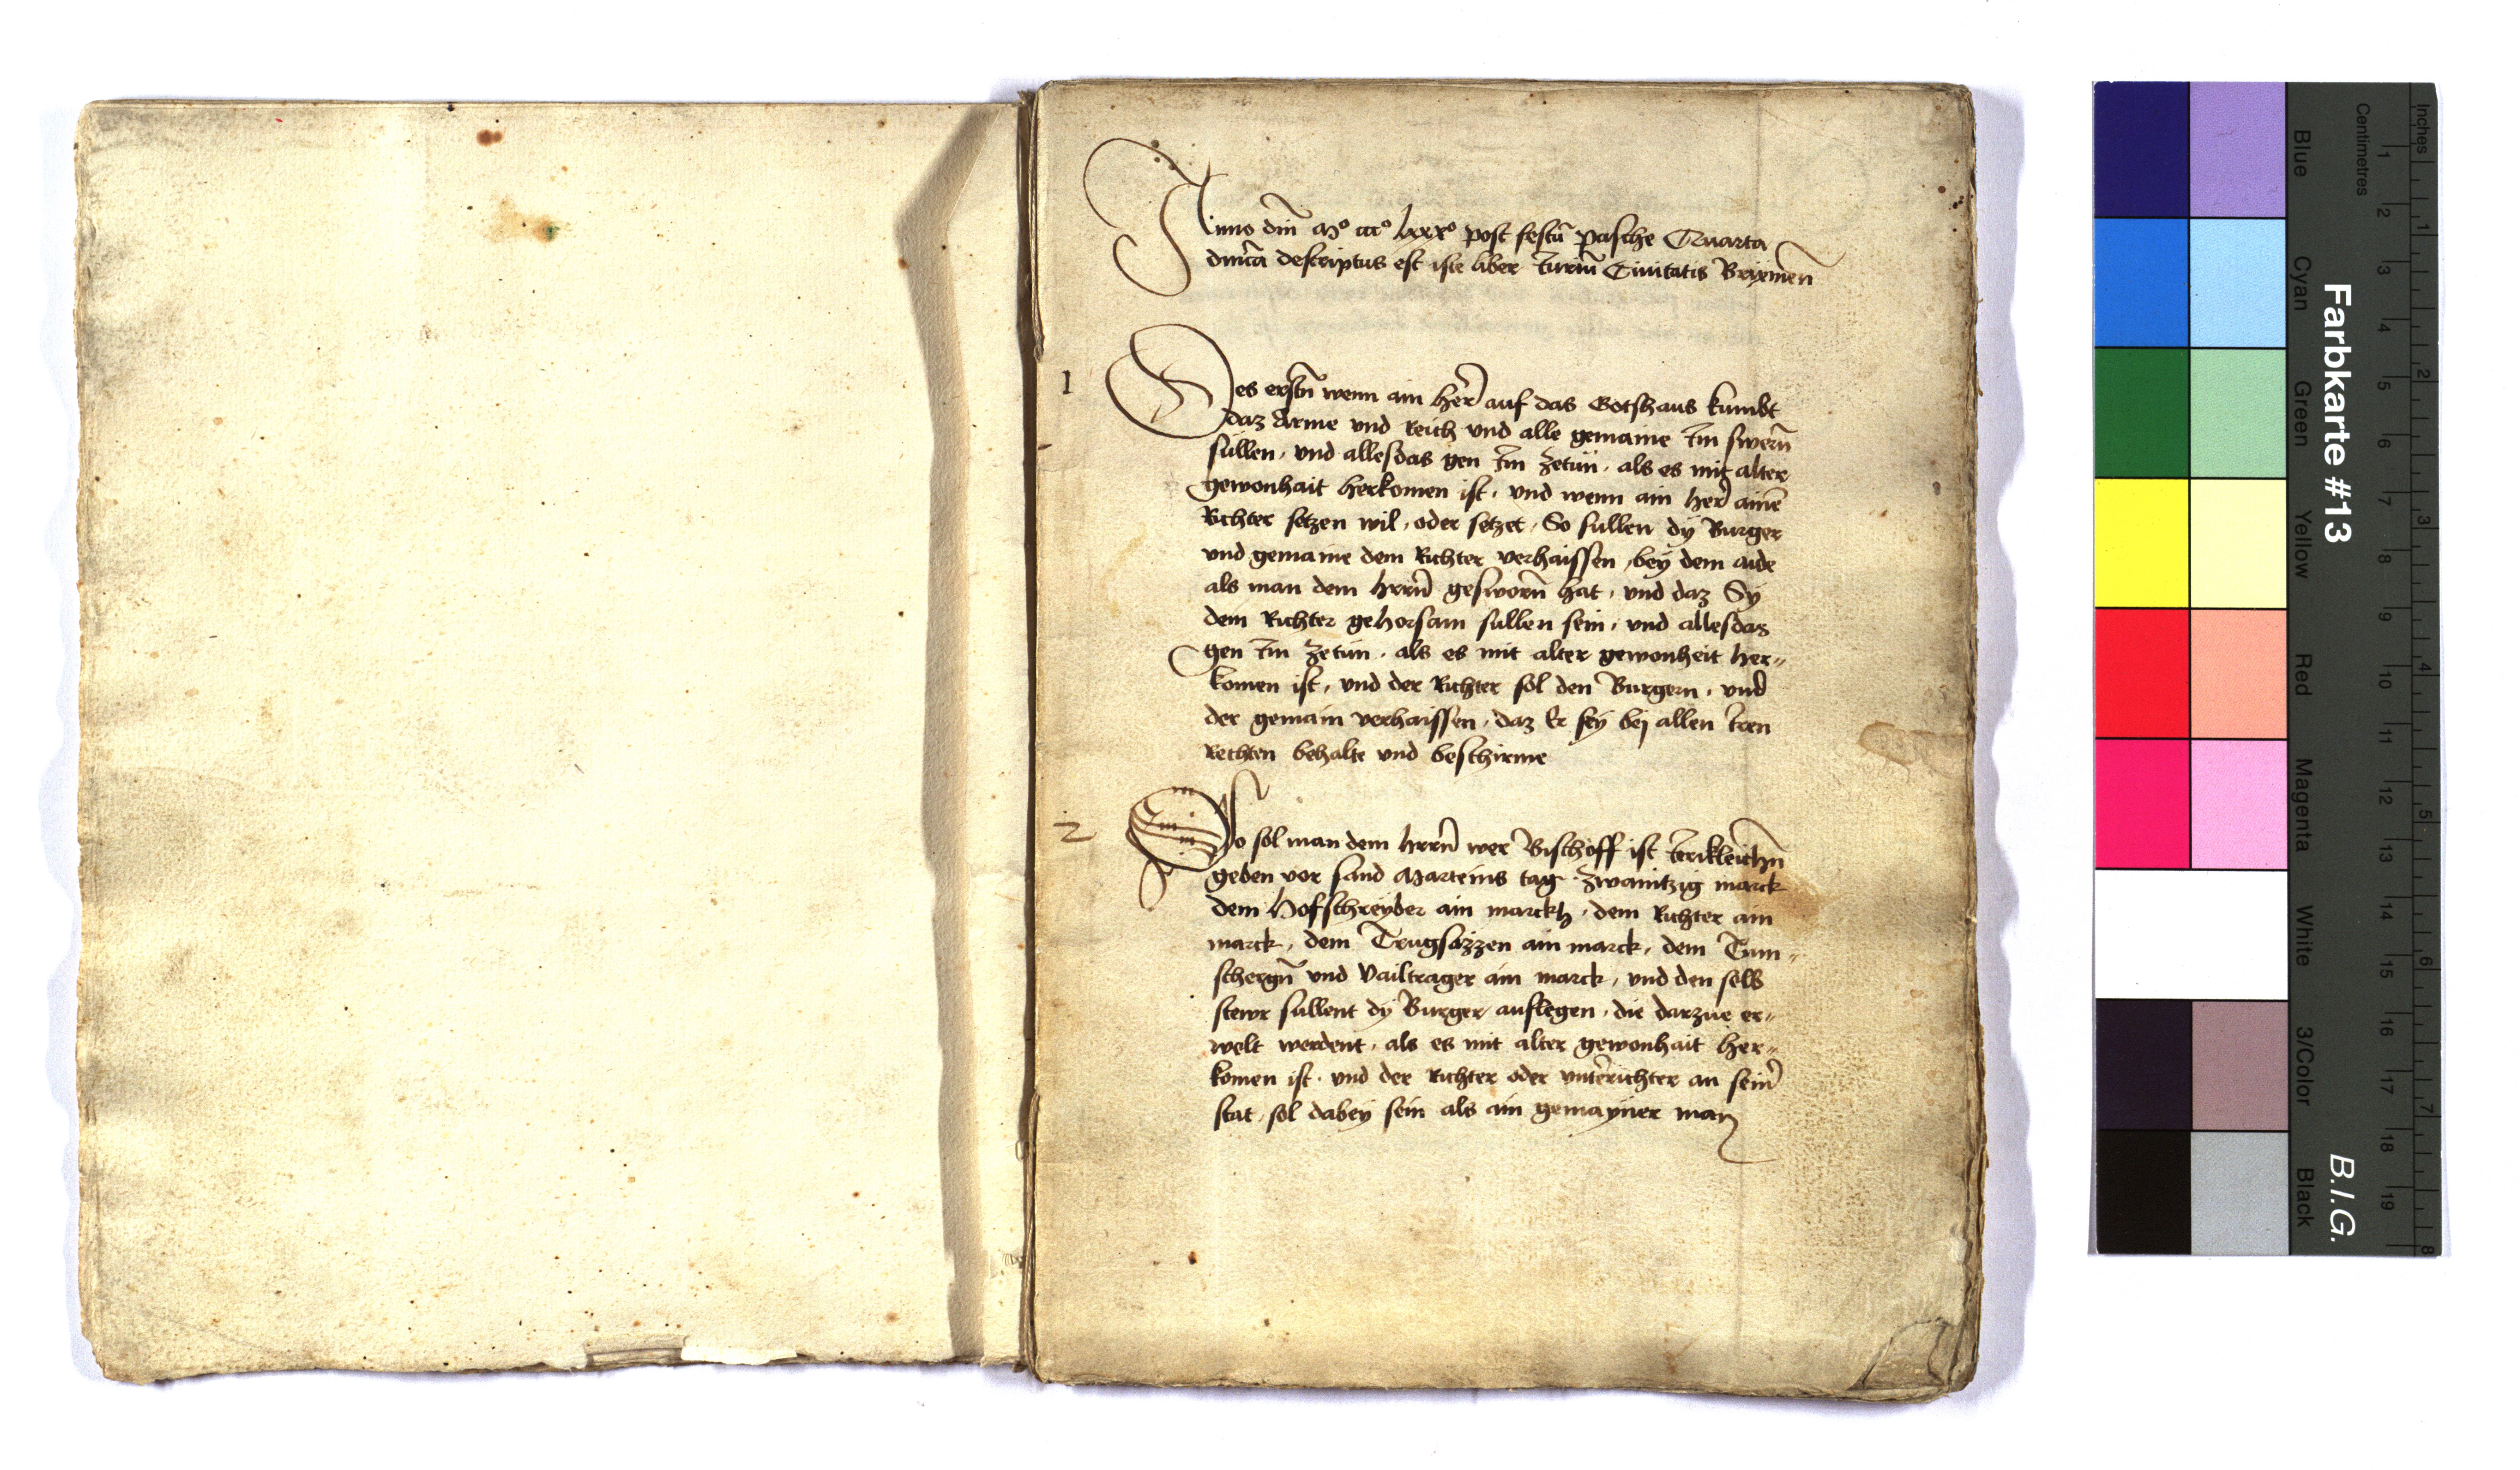 Anno dnī Mº cccº lxxxº post festū pasche Quarta
dnīca descriptus est iste liber Juriū Ciuitatis Brixineñ
1
Des erstñ wenn ain her̄ auf das Gotshaus kumbt
daz Arme vnd Reich vnd alle gemaine Jm swerñ
sullen, vnd allesdas gen Jm zetun, als es mit alter
gewonhait herkomen ist, vnd wenn ain her̄ ainē
Richter setzen wil, oder setzet, So sullen dÿ Burger
vnd gemaine dem Richter verhaissen, beÿ dem aide
als man dem hrrñ gesworñ hat, vnd daz Sÿ
dem Richter gehorsam sullen sein, vnd allesdas
gen Jm zetun, als es mit alter gewonheit her„
komen ist, vnd der Richter sol den Burgern, vnd
der gemain verhaissen, daz Er seÿ bej allen Jren
Rechten behalte vnd beschirme
2
So sol man dem hrrñ wer Bischoff ist Jerikleichñ
geben vor sand Marteins tag zwaintzig marck
dem Hofschreÿber ain marckh, dem Richter ain
marck, dem Trugsäzzen ain marck, dem Tum„
schergñ vnd Vailtrager ain marck, vnd den selb
stewr sullent dÿ Burger auflegen, die darzue er„
welt werdent, als es mit alter gewonhait her„
komen ist, vnd der Richter oder vnterichter an sein̄
stat, sol dabeÿ sein als ain gemayner man
Inches
Centimetres
1 2 3 4 5 6 7 8 9 10 11 12 13 14 15 16 17 18 19
1 2 3 4 5 6 7 8
Farbkarte #13
B.I.G.
Blue
Cyan
Green
Yellow
Red
Magenta
White
3/Color
Black